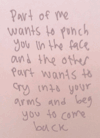 Part of me
wants to punch
you in the face
and the other
part wants to
cry into your
arms and beg
you to come
back